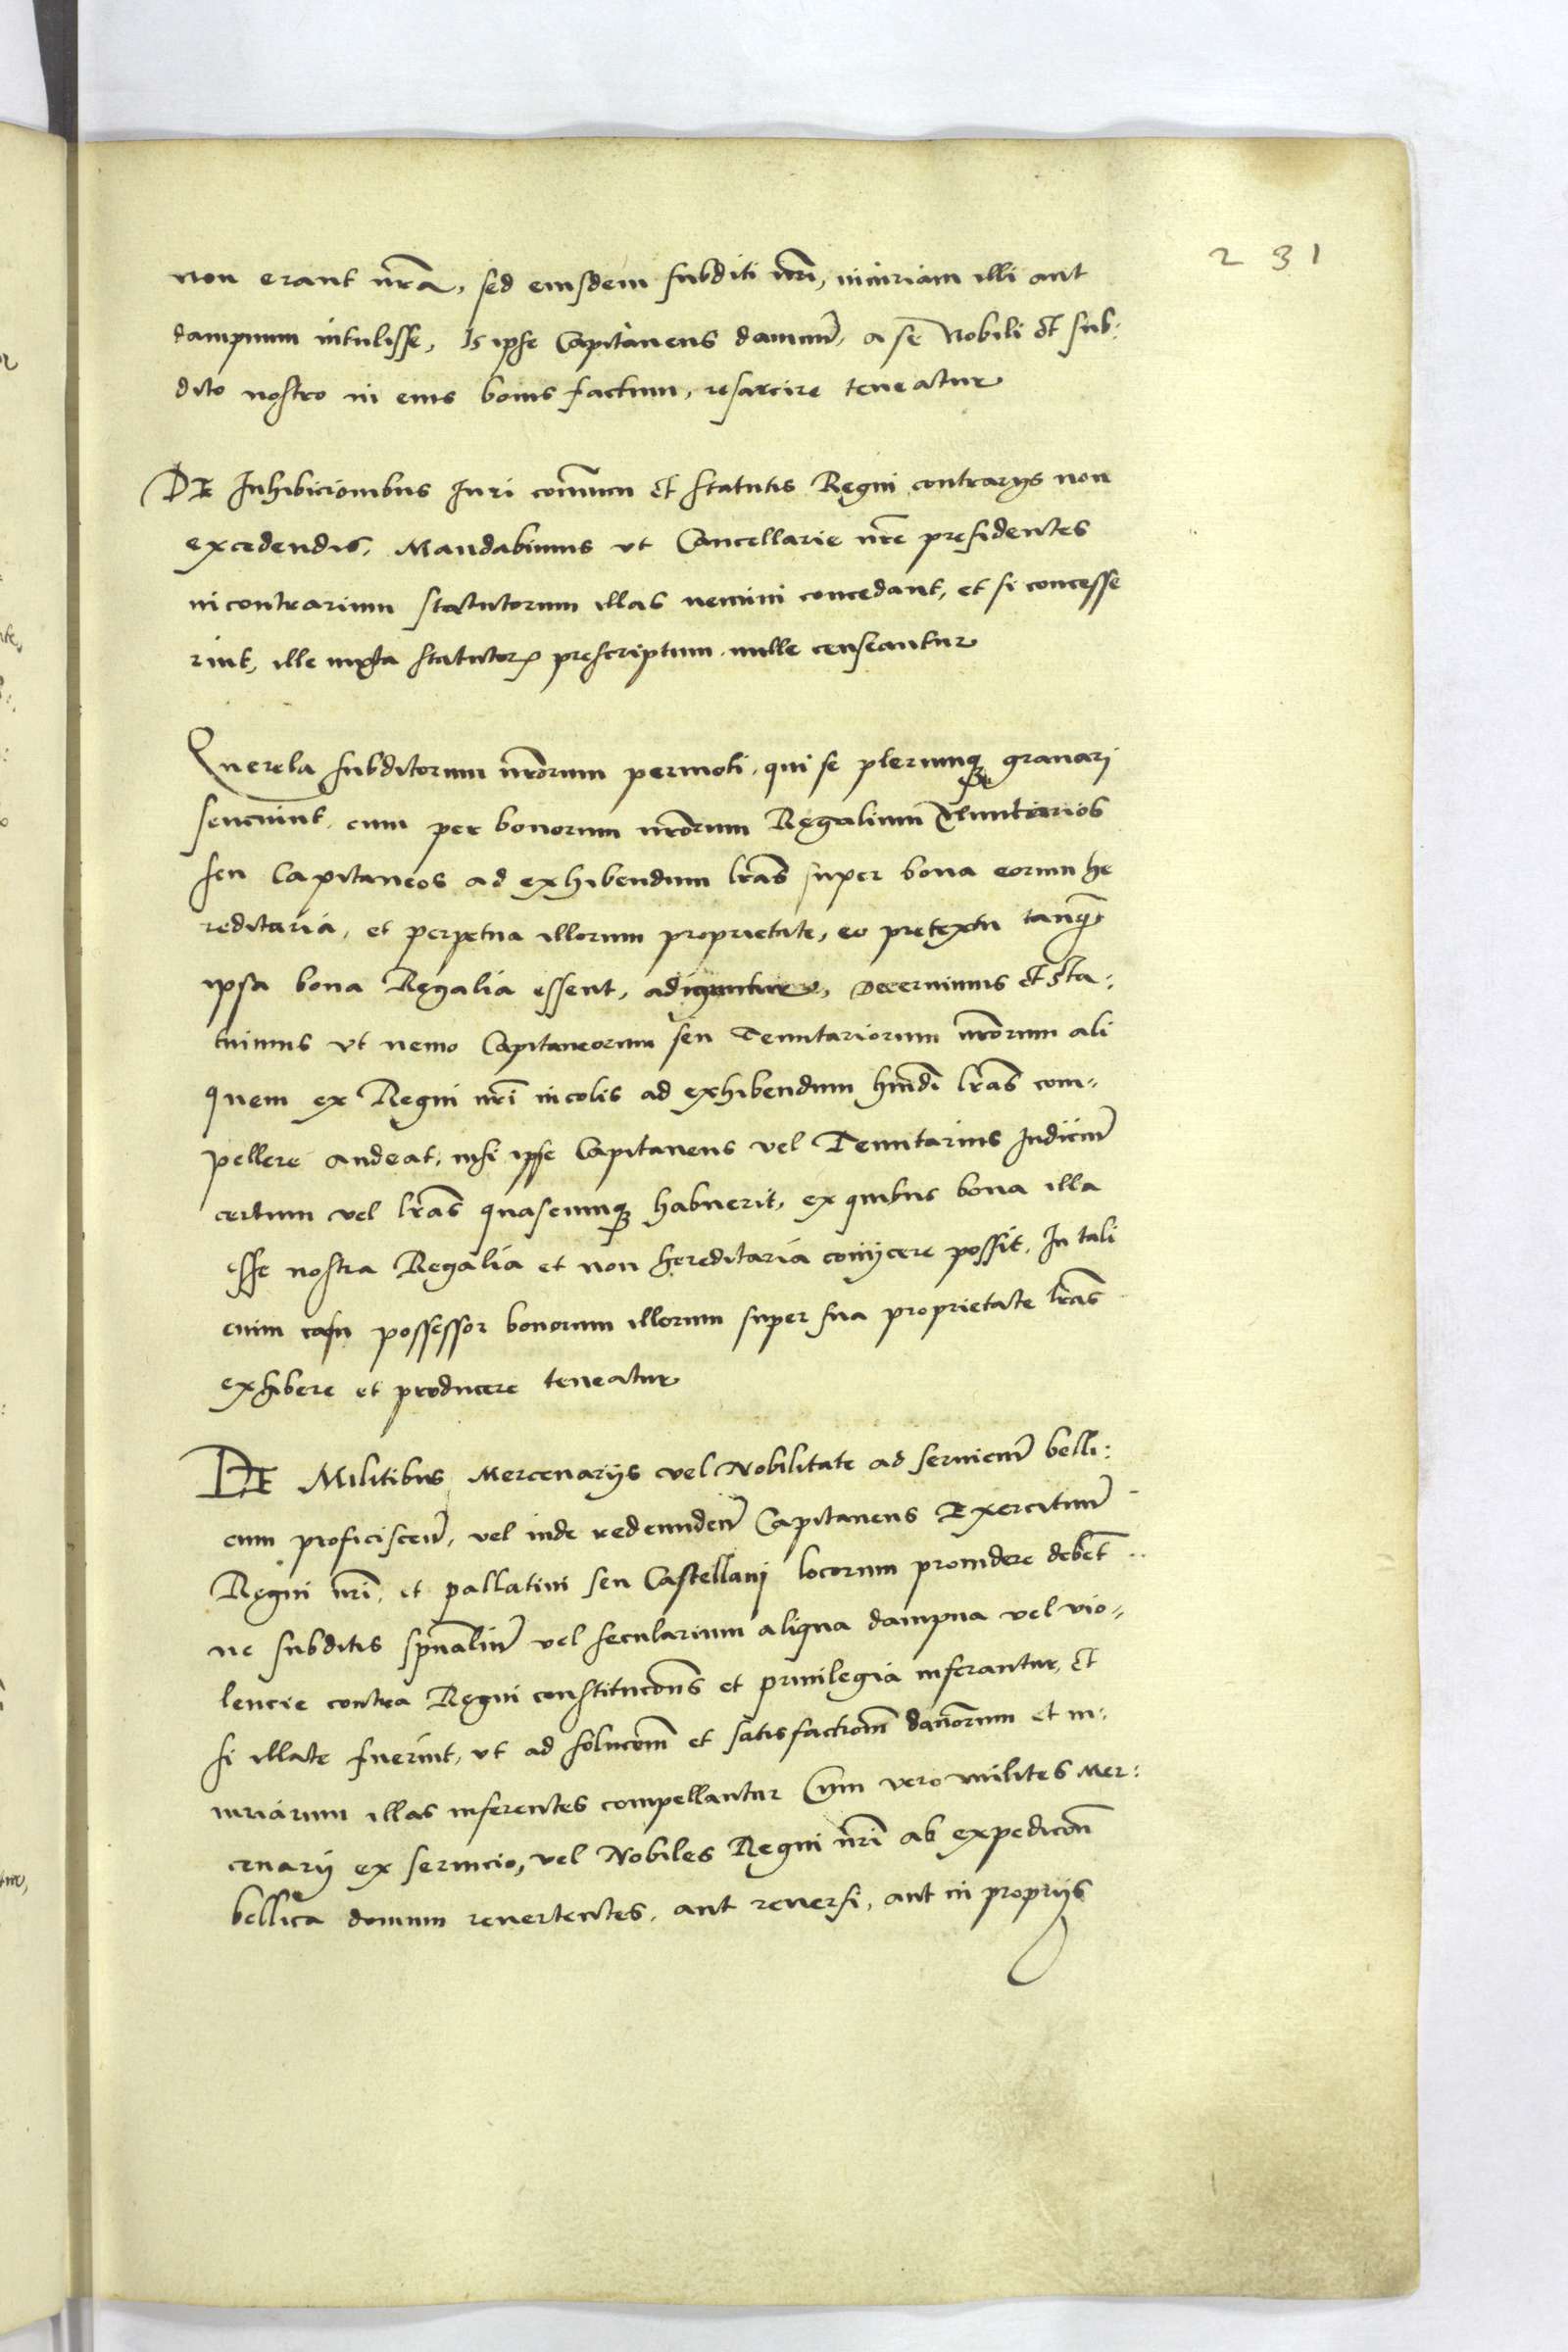 231
non erant nr̃a, sed eiusdem subditi nr̃i, iniuriam illi aut
dampnum intulisse, Is ipse Capitaneus damnũ, a se Nobili et sub:
dito nostro in eius bonis factum, resarcire teneatur
DE Inhibicionibus Iuri com̃uni et statutis Regni contrarijs non
excedendis, Mandabimus vt Cancellarie nr̃e presidentes
in contrarium statutorum illas nemini concedant, et si concesse
rint, ille iuxta statutoꝝ prescriptum nulle censeantur
Querela subditorum nr̃orum permoti, qui se plerumqꝫ grauari
senciunt, cum per bonorum nr̃orum Regalium Tenutarios
seu Capitaneos ad exhibendum lr̃as super bona eorum he
reditaria, et perpetua illorum proprietate, eo pretextu tanq̃
ipsa bona Regalia essent, adiguntur, Decernimus et sta:
tuimus vt nemo Capitaneorum seu Tenutariorum nr̃orum ali
quem ex Regni nr̃i incolis ad exhibendum hm̃di lr̃as com-
pellere audeat, nisi ipse Capitaneus vel Tenutarius Indiciũ
certum vel lr̃as quascumqꝫ habuerit, ex quibus bona illa
esse nostra Regalia et non hereditaria conijcere possit, In tali
enim casu possessor bonorum illorum super sua proprietate lr̃as
exhibere et producere teneatur
DE Militibus Mercenarijs vel Nobilitate ad seruiciũ belli:
cum proficisceñ, vel inde redeundeñ Capitaneus Exercituũ
Regni nr̃i, et pallatini seu Castellanj locorum prouidere debeñt
ne subditis spũaliũ vel secularium aliqua dampna vel vio-
lencie contra Regni constituc̃ones et priuilegia inferantur, et
si illate fuerint, vt ad soluc̃onem et satisfactionem dañorum et in:
iuriarum illas inferentes compellantur Cum vero milites Mer:
cenarij ex seruicio, vel Nobiles Regni nr̃i ab expedic̃on
bellica domum reuertentes, aut reuersi, aut in proprijs